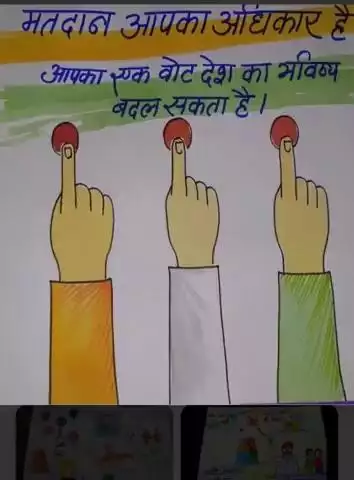 मतदान आपका अधिकार है
आपका एक वोट देश का भविष्य
बदल सकता है।